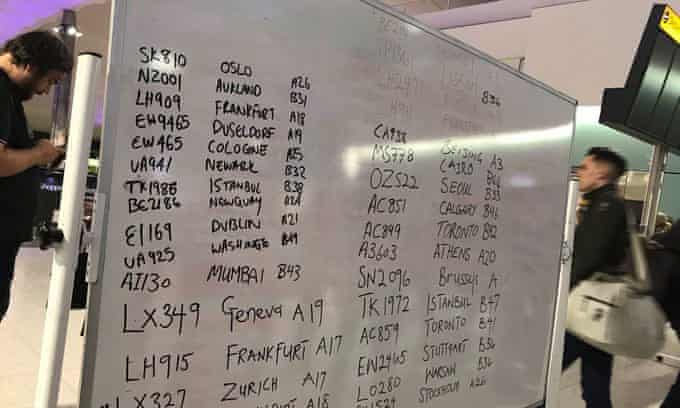 SK810 OSLO A26
NZ001 AUKLAND B31
LH909 FRANKFURT A18
EW9465 DUSELDORF A19
EW465 COLOGNE A25
UA941 NEWARK B32
TK1986 ISTANBUL B38
BE2186 NEWQUAY A24
EI169 DUBLIN A21
UA925 WASHINGTON B49
AI130 MUMBAI B43
LX349 Geneva A19
LH915 FRANKFURT A17
LX327 ZURICH A17
A18
B36
CA938 BEIJING A3
MS778 CAIRO
OZ522 SEOUL B33
AC851 CALGARY B46
AC899 TORONTO
A3603 ATHENS A20
SN2096 Brussels A
TK1972 ISTANBUL B47
AC859 TORONTO B41
EW2465 STUTTGART B36
LO280 WARSAW
STOCKHOLM A26